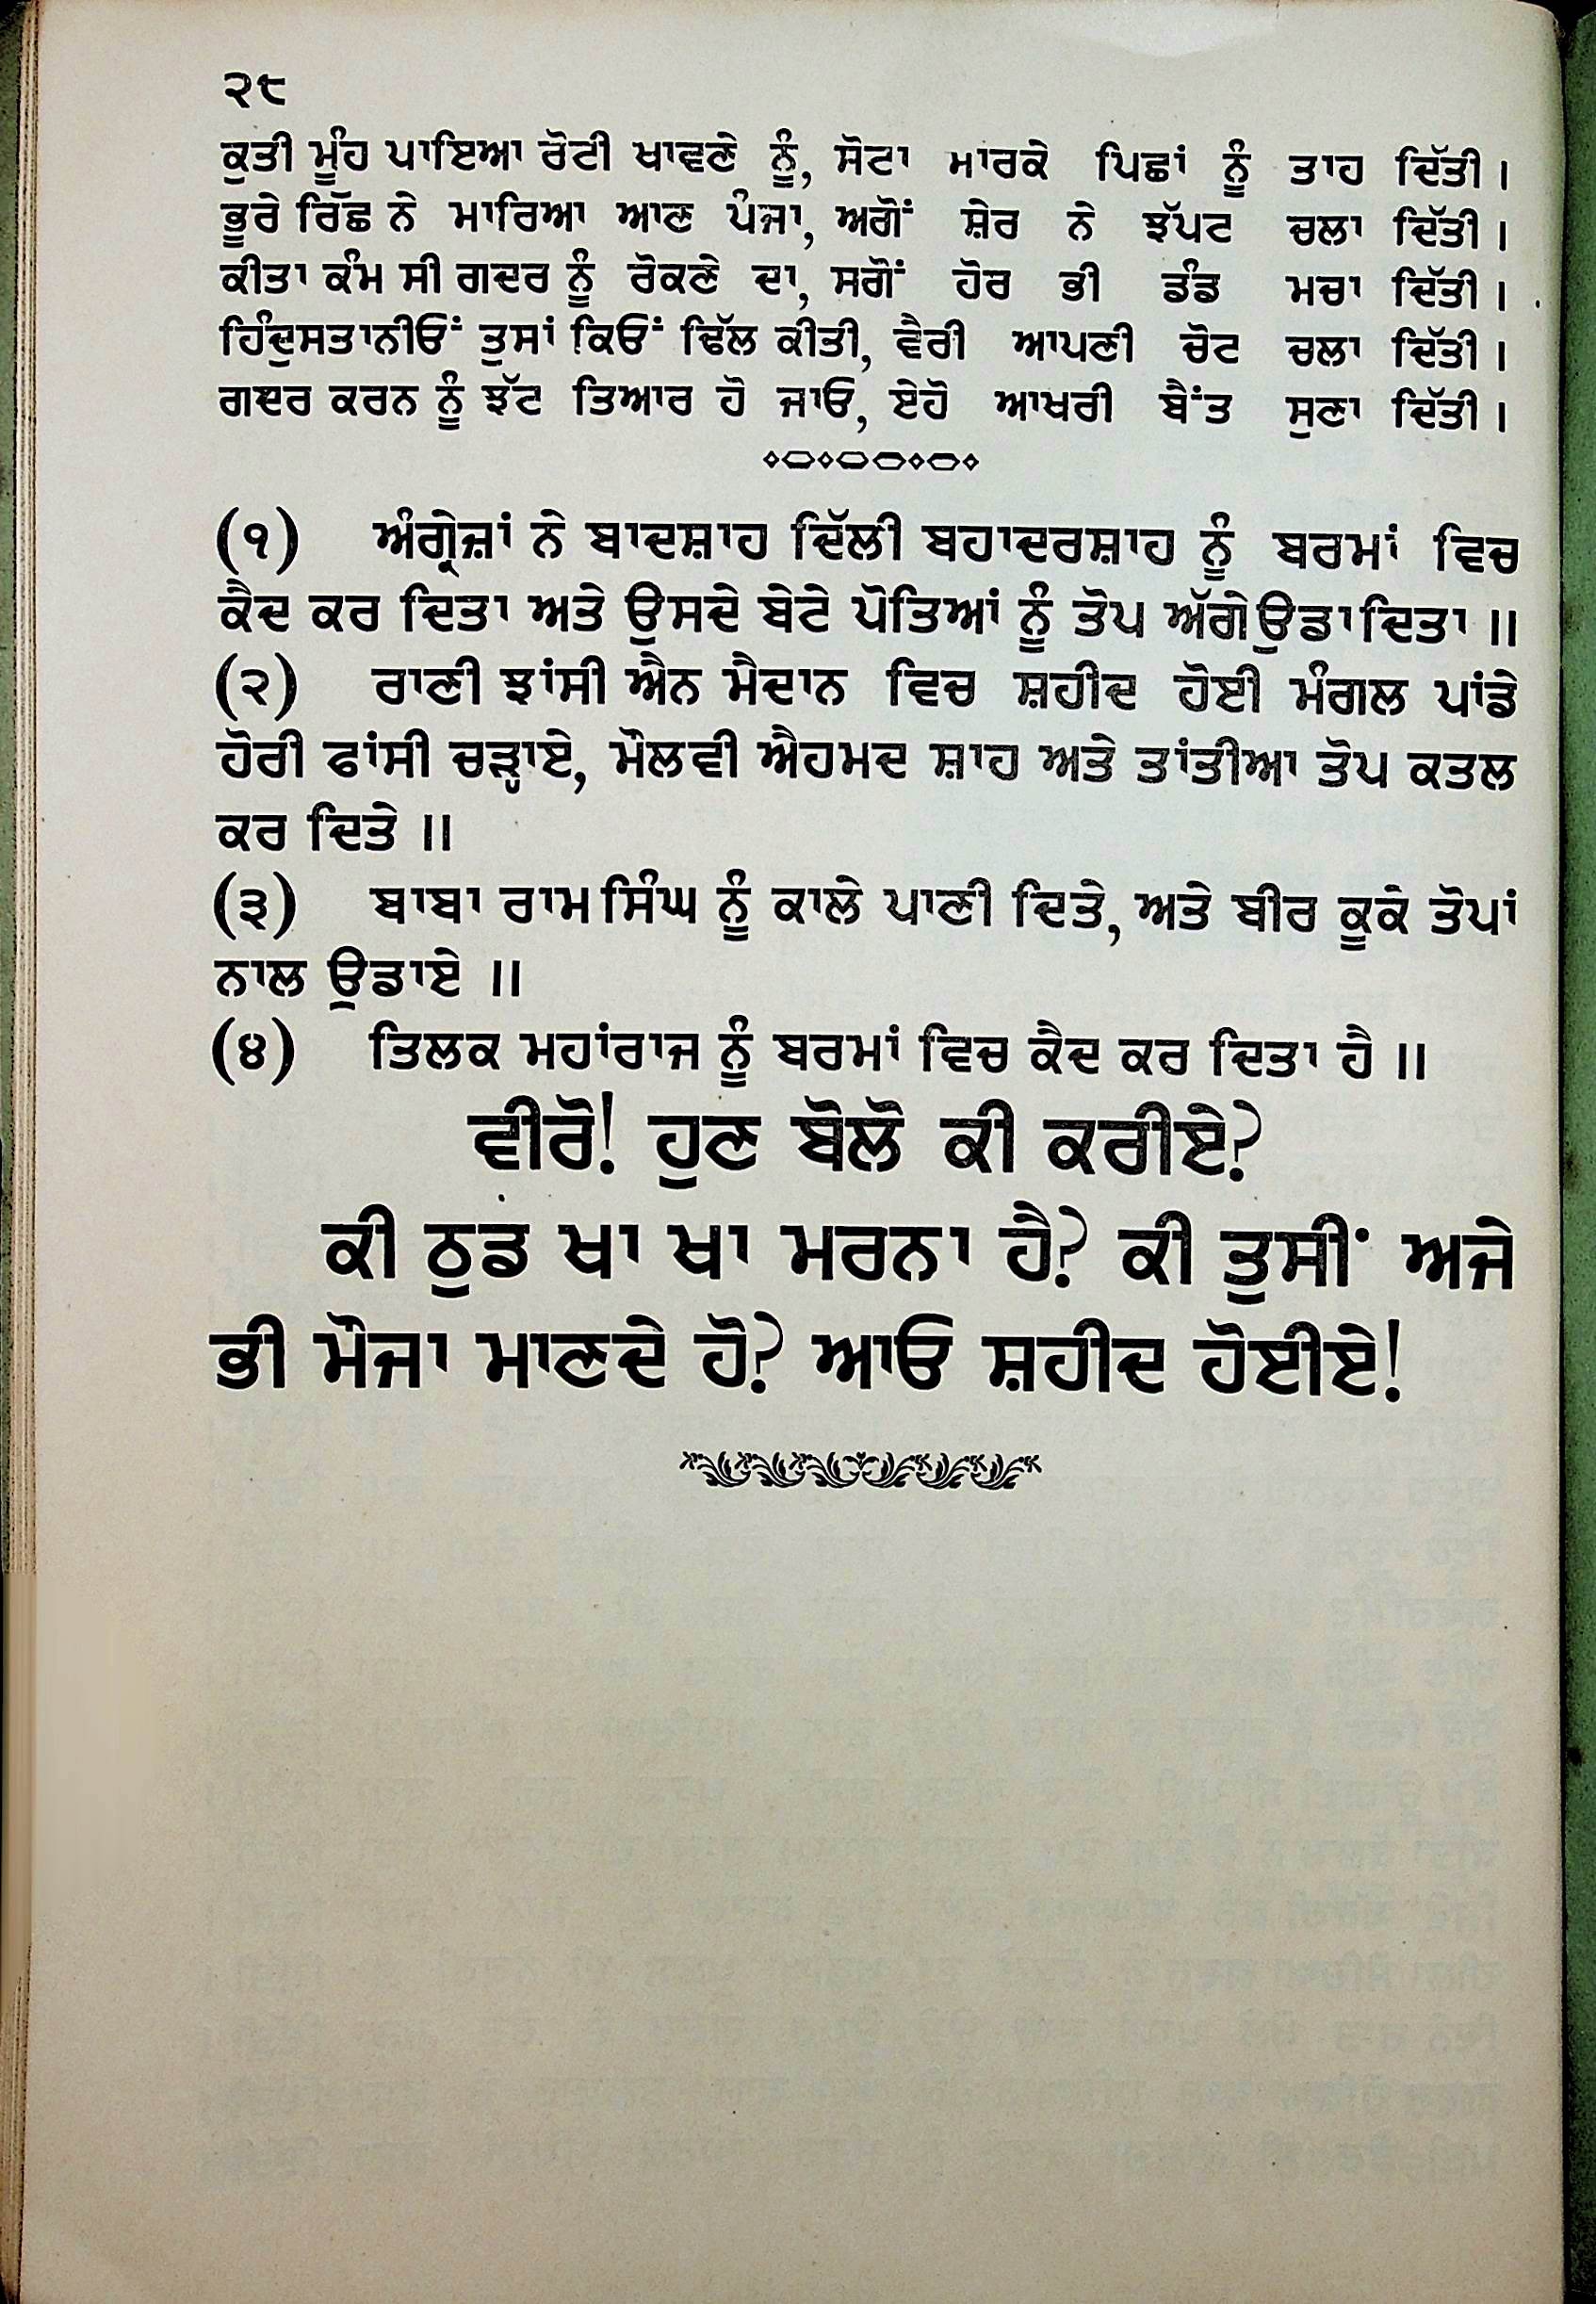 ੨੮
ਕੁਤੀ ਮੂੰਹ ਪਾਇਆ ਰੋਟੀ ਖਾਵਣੇ ਨੂੰ, ਸੋਟਾ ਮਾਰਕੇ ਪਿਛਾਂ ਨੂੰ ਤਾਹ ਦਿੱਤੀ।
ਭੂਰੇ ਰਿੱਛ ਨੇ ਮਾਰਿਆ ਆਣ ਪੰਜਾ, ਅਗੋਂ ਸ਼ੇਰ ਨੇ ਝੱਪਟ ਚਲਾ ਦਿੱਤੀ।
ਕੀਤਾ ਕੰਮ ਸੀ ਗਦਰ ਨੂੰ ਰੋਕਣੇ ਦਾ, ਸਗੋਂ ਹੋਰ ਭੀ ਡੰਡ ਮਚਾ ਦਿੱਤੀ।
ਹਿੰਦੁਸਤਾਨੀਓਂ ਤੁਸਾਂ ਕਿਓਂ ਢਿੱਲ ਕੀਤੀ, ਵੈਰੀ ਆਪਣੀ ਚੋਟ ਚਲਾ ਦਿੱਤੀ।
ਗਦਰ ਕਰਨ ਨੂੰ ਝੱਟ ਤਿਆਰ ਹੋ ਜਾਓ, ਏਹੋ ਆਖਰੀ ਬੈਂਤ ਸੁਣਾ ਦਿੱਤੀ।
(੧) ਅੰਗ੍ਰੇਜ਼ਾਂ ਨੇ ਬਾਦਸ਼ਾਹ ਦਿੱਲੀ ਬਹਾਦਰਸ਼ਾਹ ਨੂੰ ਬਰਮਾਂ ਵਿਚ
ਕੈਦ ਕਰ ਦਿਤਾ ਅਤੇ ਉਸਦੇ ਬੇਟੇ ਪੋਤਿਆਂ ਨੂੰ ਤੋਪ ਅੱਗੇ ਉਡਾ ਦਿਤਾ ॥
(੨) ਰਾਣੀ ਝਾਂਸੀ ਐਨ ਮੈਦਾਨ ਵਿਚ ਸ਼ਹੀਦ ਹੋਈ ਮੰਗਲ ਪਾਂਡੇ
ਹੋਰੀ ਫਾਂਸੀ ਚੜ੍ਹਾਏ, ਮੌਲਵੀ ਐਹਮਦ ਸ਼ਾਹ ਅਤੇ ਤਾਂਤੀਆ ਤੋਪ ਕਤਲ
ਕਰ ਦਿਤੇ ॥
(੩) ਬਾਬਾ ਰਾਮ ਸਿੰਘ ਨੂੰ ਕਾਲੇ ਪਾਣੀ ਦਿਤੇ, ਅਤੇ ਬੀਰ ਕੂਕੇ ਤੋਪਾਂ
ਨਾਲ ਉਡਾਏ ॥
(੪) ਤਿਲਕ ਮਹਾਂਰਾਜ ਨੂੰ ਬਰਮਾਂ ਵਿਚ ਕੈਦ ਕਰ ਦਿਤਾ ਹੈ ॥
ਵੀਰੋ! ਹੁਣ ਬੋਲੋ ਕੀ ਕਰੀਏ?
ਕੀ ਠੁਡ ਖਾ ਖਾ ਮਰਨਾ ਹੈ? ਕੀ ਤੁਸੀਂ ਅਜੇ
ਭੀ ਮੌਜਾ ਮਾਣਦੇ ਹੋ? ਆਓ ਸ਼ਹੀਦ ਹੋਈਏ!